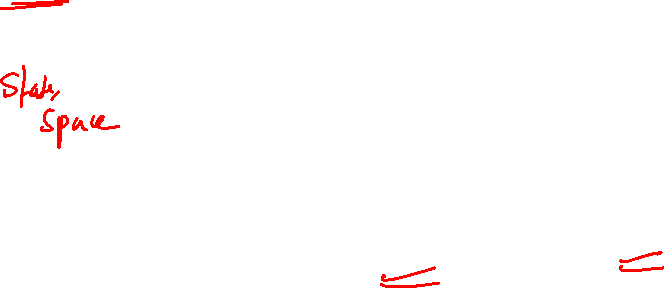 State
Space